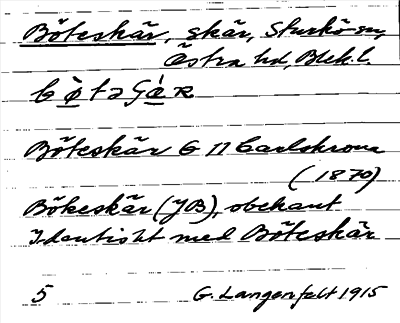 Böteskär, skär, Sturkö sn,
Östra hd, Blek. l.
Böteskär G 11 Carlskrona
(1870)
Bökeskär (JB), obekant
Identiskt med Böteskär
5 G. Langenfelt 1915